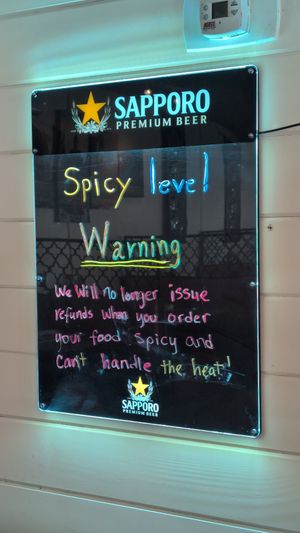 SAPPORO
PREMIUM BEER
Spicy level
Warning
We Will no longer issue
refunds when you order
your food spicy and
Can't handle the heat!
SAPPORO
PREMIUM BEER